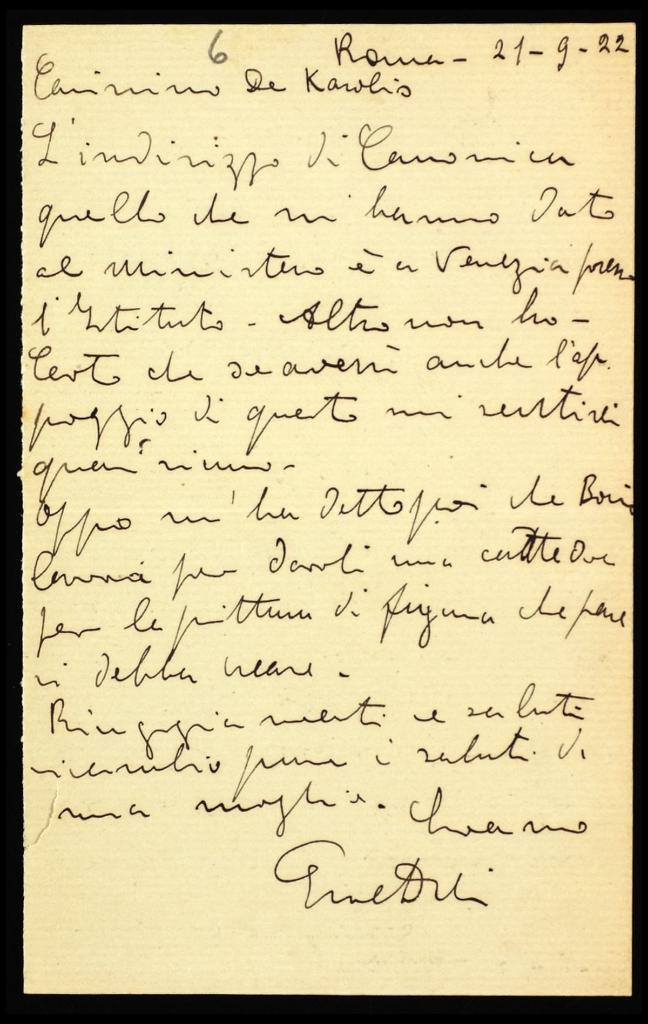 6
Roma - 21-9-22
Carissimo De Karolis
L'indirizzo di Canonica
quello che mi hanno dato
al Ministero è a Venezia presso
l'Istituto - Altro non ho -
Certo che se avessi anche l'ap-
poggio di questo mi sentirei
quasi sicuro -
Oppo m'ha detto poi che
per darti una cattedra
per la pittura di figura che pare
si debba creare -
Ringraziamenti e saluti
ricambio pure i saluti di
mia moglie -